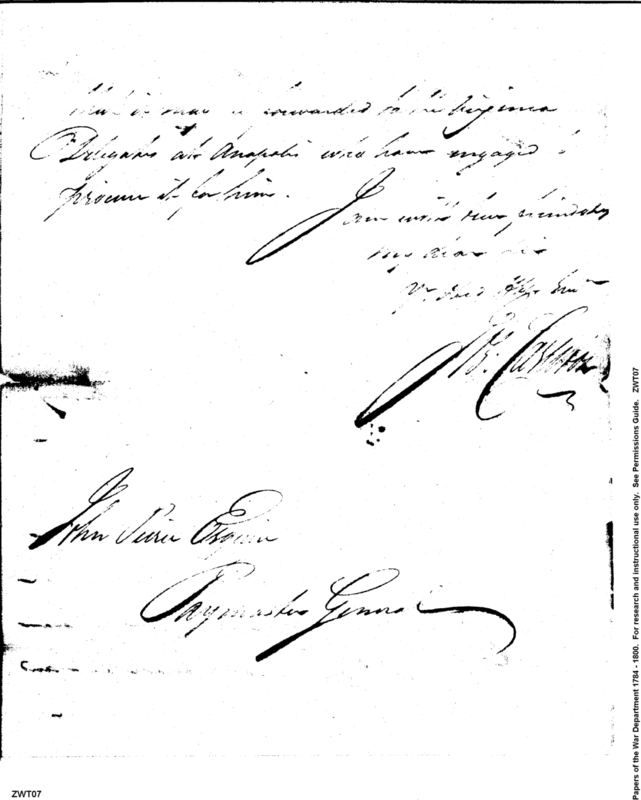 that it may be forwarded to the Virginia
Delegates at Anapolis who have engaged to
procure it for him.
I am with true friendship
my dear sir
Yr
John Pierce Esquire
Paymaster General
ZWT07
Papers of the War Department 1784 - 1800. For research and instructional use only. See Permissions Guide. ZWT07